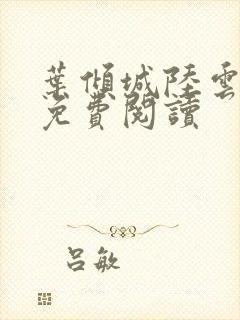 葉傾城陸雲
免費閱讀
呂敏